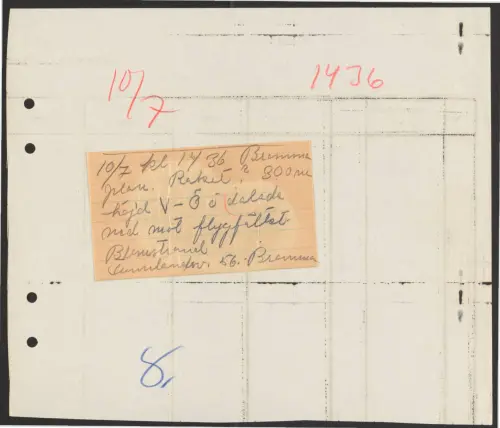 10/7
1436
10/7 kl 1436 Bromma
plan. Raket? 300 m
höjd V-Ö o dalade
ned mot flygfältet
Blomstrand
56. Bromma
8,